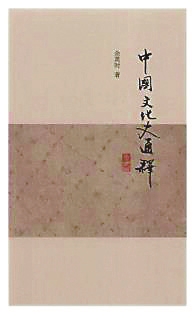 中國文化史通釋
余英时 著